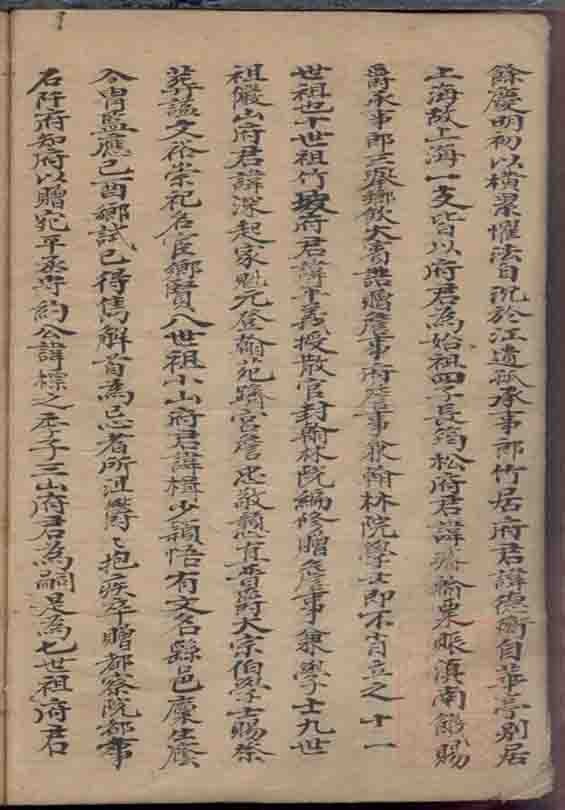 餘慶明初以橫累懼法自沉於江遺孤承事郎竹居府君諱德衡自華亭別居
上海故上海一支皆以府君為始祖四子長筠松府君諱璿輸粟賑滇南饑賜
爵承事郎三廢鄉飲大賓誥贈詹事府詹事兼翰林院學士即不肖立之十一
世祖也十世祖竹坡府君諱平義授散官封翰林院編修贈詹事兼學士九世
祖儼山府君諱深起家魁元登翰苑躋宮詹忠敬穎悫直晉爵大宗伯學士賜祭
葬謚文裕崇祀名宦鄉賢八世祖小山府君諱楫少穎悟有文名縣邑廩生廕
入胄監應己酉鄉試已得雋解首為忌者所沮鬱〻抱疾卒贈都察院都事
石阡府知府以贈宛平丞專約公諱標之季子三山府君為嗣是為七世祖府君